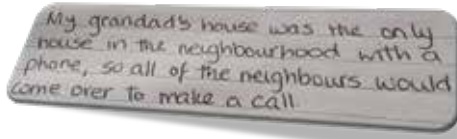 My grandad's house was the only
house in the neighbourhood with a
phone, so all of the neighbours would
come over to make a call